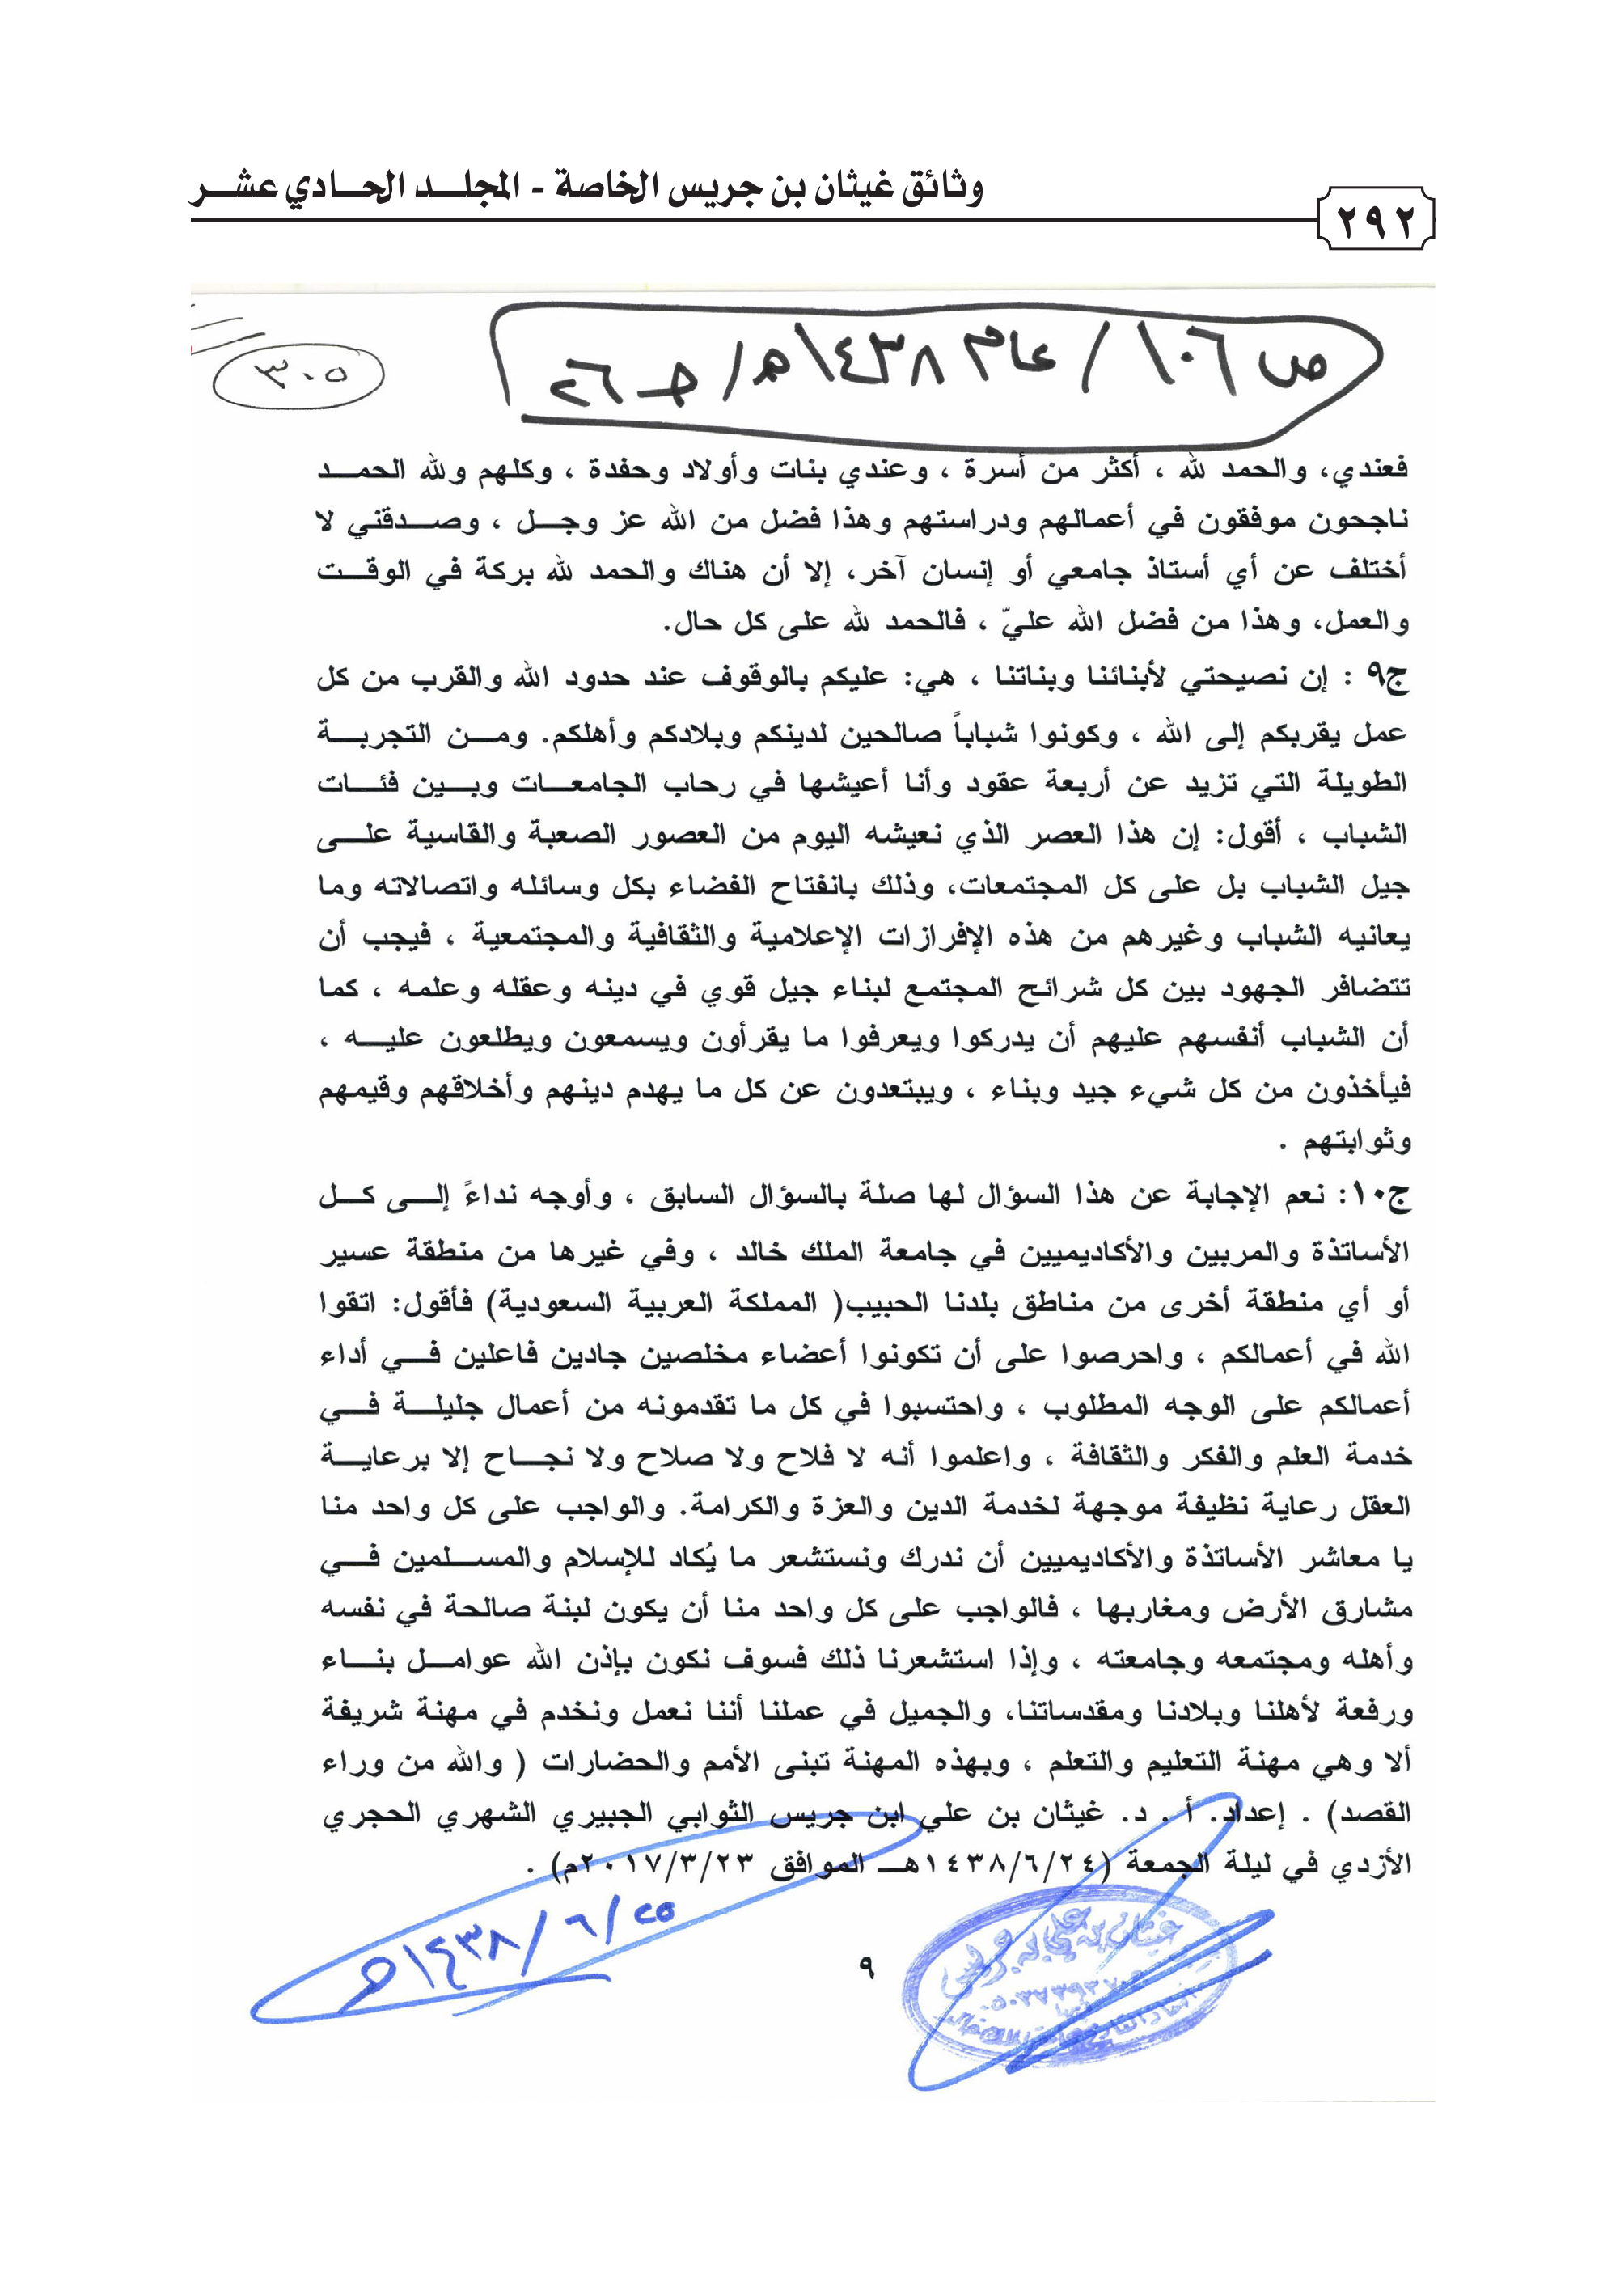 وثائق غيثان بن جريس الخاصة - المجلـــد الحـــادي عشـــر
٢٩٢
ص ١٠٦ / عام ١٤٣٨هـ / حـ ٢٦
٣٠٥
فعندي، والحمد لله ، أكثر من أسرة ، وعندي بنات وأولاد وحفدة ، وكلهم ولله الحمـــد
ناجحون موفقون في أعمالهم ودراستهم وهذا فضل من الله عز وجـــل ، وصـــدقني لا
أختلف عن أي أستاذ جامعي أو إنسان آخر، إلا أن هناك والحمد لله بركة في الوقـــت
والعمل، وهذا من فضل الله عليّ ، فالحمد لله على كل حال.
ج٩ : إن نصيحتي لأبنائنا وبناتنا ، هي: عليكم بالوقوف عند حدود الله والقرب من كل
عمل يقربكم إلى الله ، وكونوا شباباً صالحين لدينكم وبلادكم وأهلكم. ومـــن التجربـــة
الطويلة التي تزيد عن أربعة عقود وأنا أعيشها في رحاب الجامعـــات وبـــين فئـــات
الشباب ، أقول: إن هذا العصر الذي نعيشه اليوم من العصور الصعبة والقاسية علـــى
جيل الشباب بل على كل المجتمعات، وذلك بانفتاح الفضاء بكل وسائله واتصالاته وما
يعانيه الشباب وغيرهم من هذه الإفرازات الإعلامية والثقافية والمجتمعية ، فيجب أن
تتضافر الجهود بين كل شرائح المجتمع لبناء جيل قوي في دينه وعقله وعلمه ، كما
أن الشباب أنفسهم عليهم أن يدركوا ويعرفوا ما يقرأون ويسمعون ويطلعون عليـــه ،
فيأخذون من كل شيء جيد وبناء ، ويبتعدون عن كل ما يهدم دينهم وأخلاقهم وقيمهم
وثوابتهم .
ج١٠: نعم الإجابة عن هذا السؤال لها صلة بالسؤال السابق ، وأوجه نداءً إلـــى كـــل
الأساتذة والمربين والأكاديميين في جامعة الملك خالد ، وفي غيرها من منطقة عسير
أو أي منطقة أخرى من مناطق بلدنا الحبيب( المملكة العربية السعودية) فأقول: اتقوا
الله في أعمالكم ، واحرصوا على أن تكونوا أعضاء مخلصين جادين فاعلين فـــي أداء
أعمالكم على الوجه المطلوب ، واحتسبوا في كل ما تقدمونه من أعمال جليلـــة فـــي
خدمة العلم والفكر والثقافة ، واعلموا أنه لا فلاح ولا صلاح ولا نجـــاح إلا برعايـــة
العقل رعاية نظيفة موجهة لخدمة الدين والعزة والكرامة. والواجب على كل واحد منا
يا معاشر الأساتذة والأكاديميين أن ندرك ونستشعر ما يُكاد للإسلام والمســـلمين فـــي
مشارق الأرض ومغاربها ، فالواجب على كل واحد منا أن يكون لبنة صالحة في نفسه
وأهله ومجتمعه وجامعته ، وإذا استشعرنا ذلك فسوف نكون بإذن الله عوامـــل بنـــاء
ورفعة لأهلنا وبلادنا ومقدساتنا، والجميل في عملنا أننا نعمل ونخدم في مهنة شريفة
ألا وهي مهنة التعليم والتعلم ، وبهذه المهنة تبنى الأمم والحضارات ( والله من وراء
القصد) . إعداد. أ . د. غيثان بن علي ابن جريس الثوابي الجبيري الشهري الحجري
الأزدي في ليلة الجمعة (١٤٣٨/٦/٢٤هـــ الموافق ٢٠١٧/٣/٢٣م) .
١٤٣٨/٦/٢٥هـ
غيثان بن علي بن جريس
٩